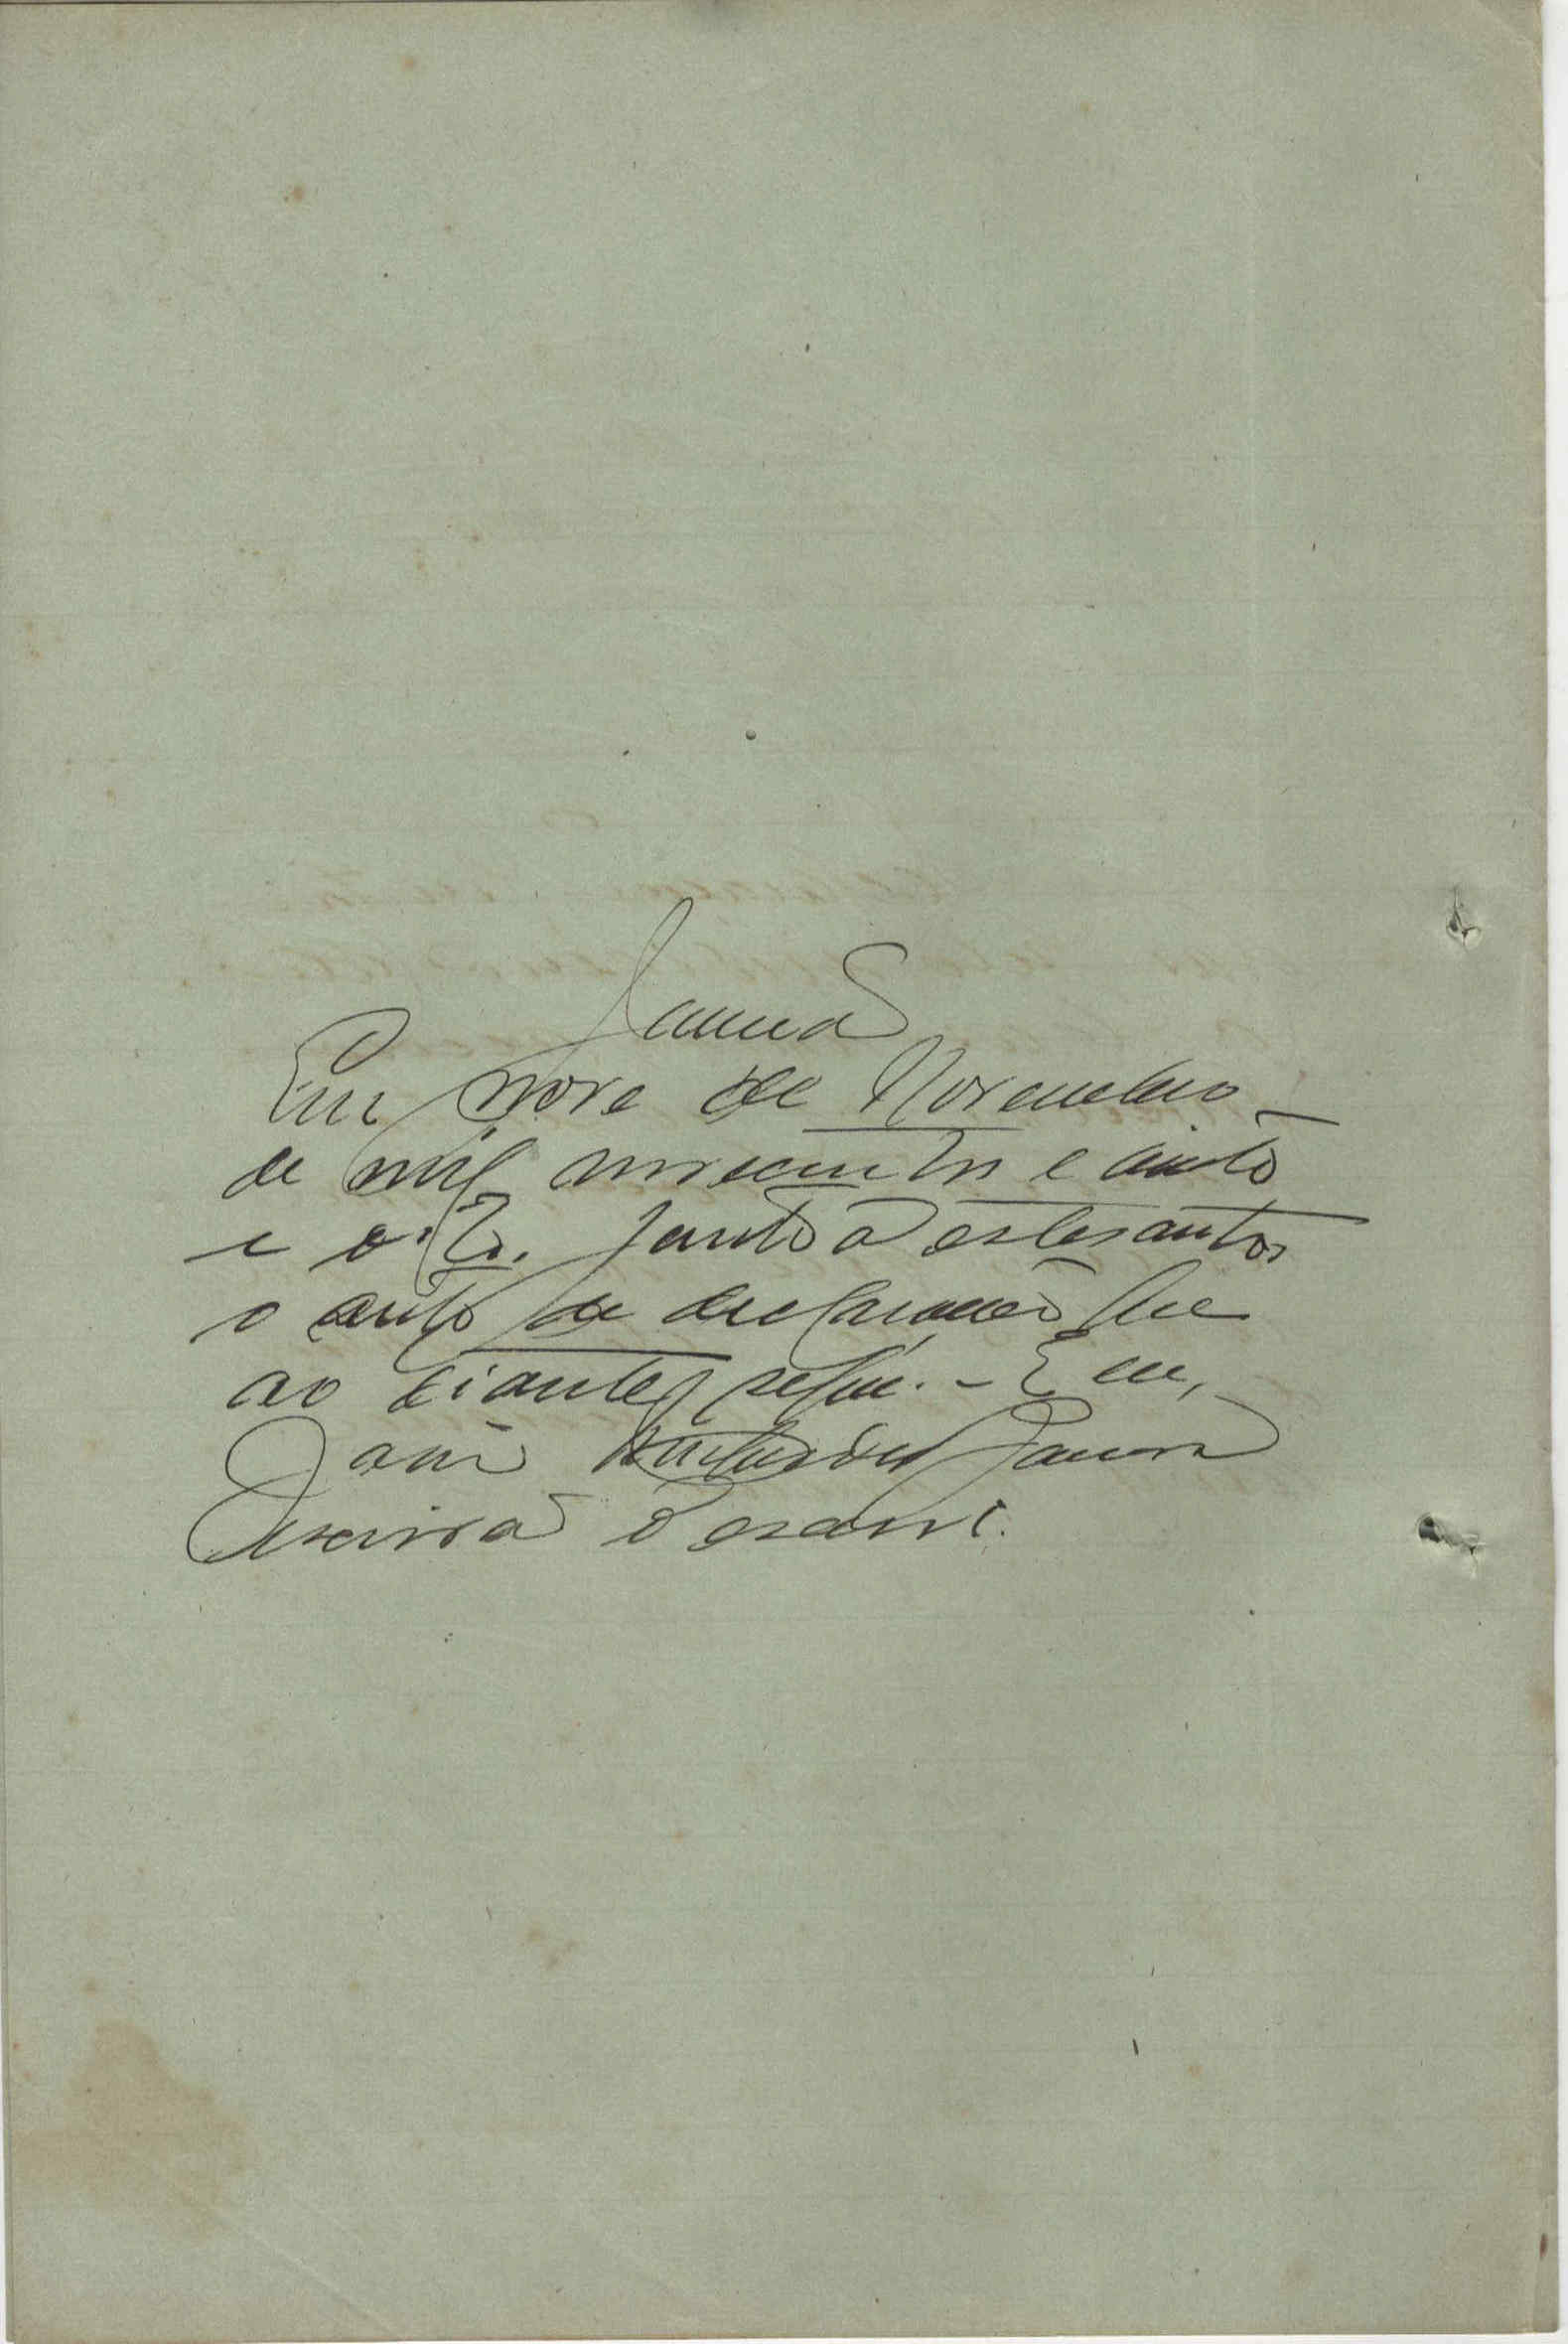 Juntada
Em nove de Novembro
de mil novecentos e vinte
e oito, junto a estes autos
o auto de declarações que
ao diante segue. – Eu,
escrivão o escrevi.